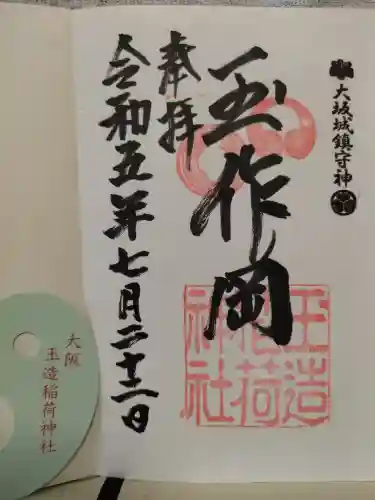 大坂城鎮守神
玉作岡
奉拝
令和五年七月二十二日
玉造
稲荷
神社
大阪
玉造稲荷神社